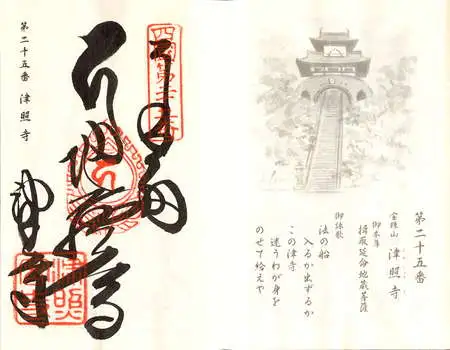 第二十五番
宝珠山 津照寺
御本尊
楫取延命地蔵菩薩
御詠歌
法の船
入るか出ずるか
この津寺
迷うわが身を
のせて給えや
四国第二十五番
津照寺
第二十五番 津照寺